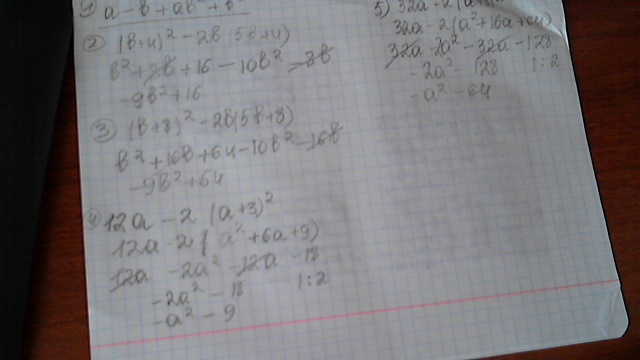 1) a - b + ab² + b
2) (b+4)² - 2b(5b+4)
b² + 8b + 16 - 10b² - 8b
-9b² + 16
3) (b+8)² - 2b(5b+8)
b² + 16b + 64 - 10b² - 16b
-9b² + 64
4) 12a - 2(a+3)²
12a - 2(a² + 6a + 9)
12a - 2a² - 12a - 18
-2a² - 18 1:2
-a² - 9
5) 32a - 2(a+8)²
32a - 2(a² + 16a + 64)
32a - 2a² - 32a - 128
-2a² - 128 1:2
-a² - 64